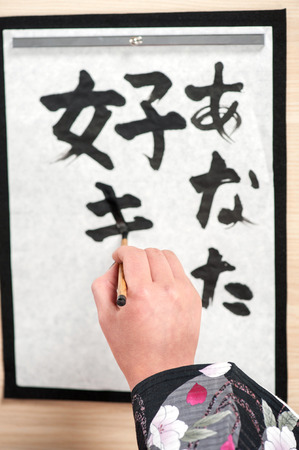 あなた
好キ